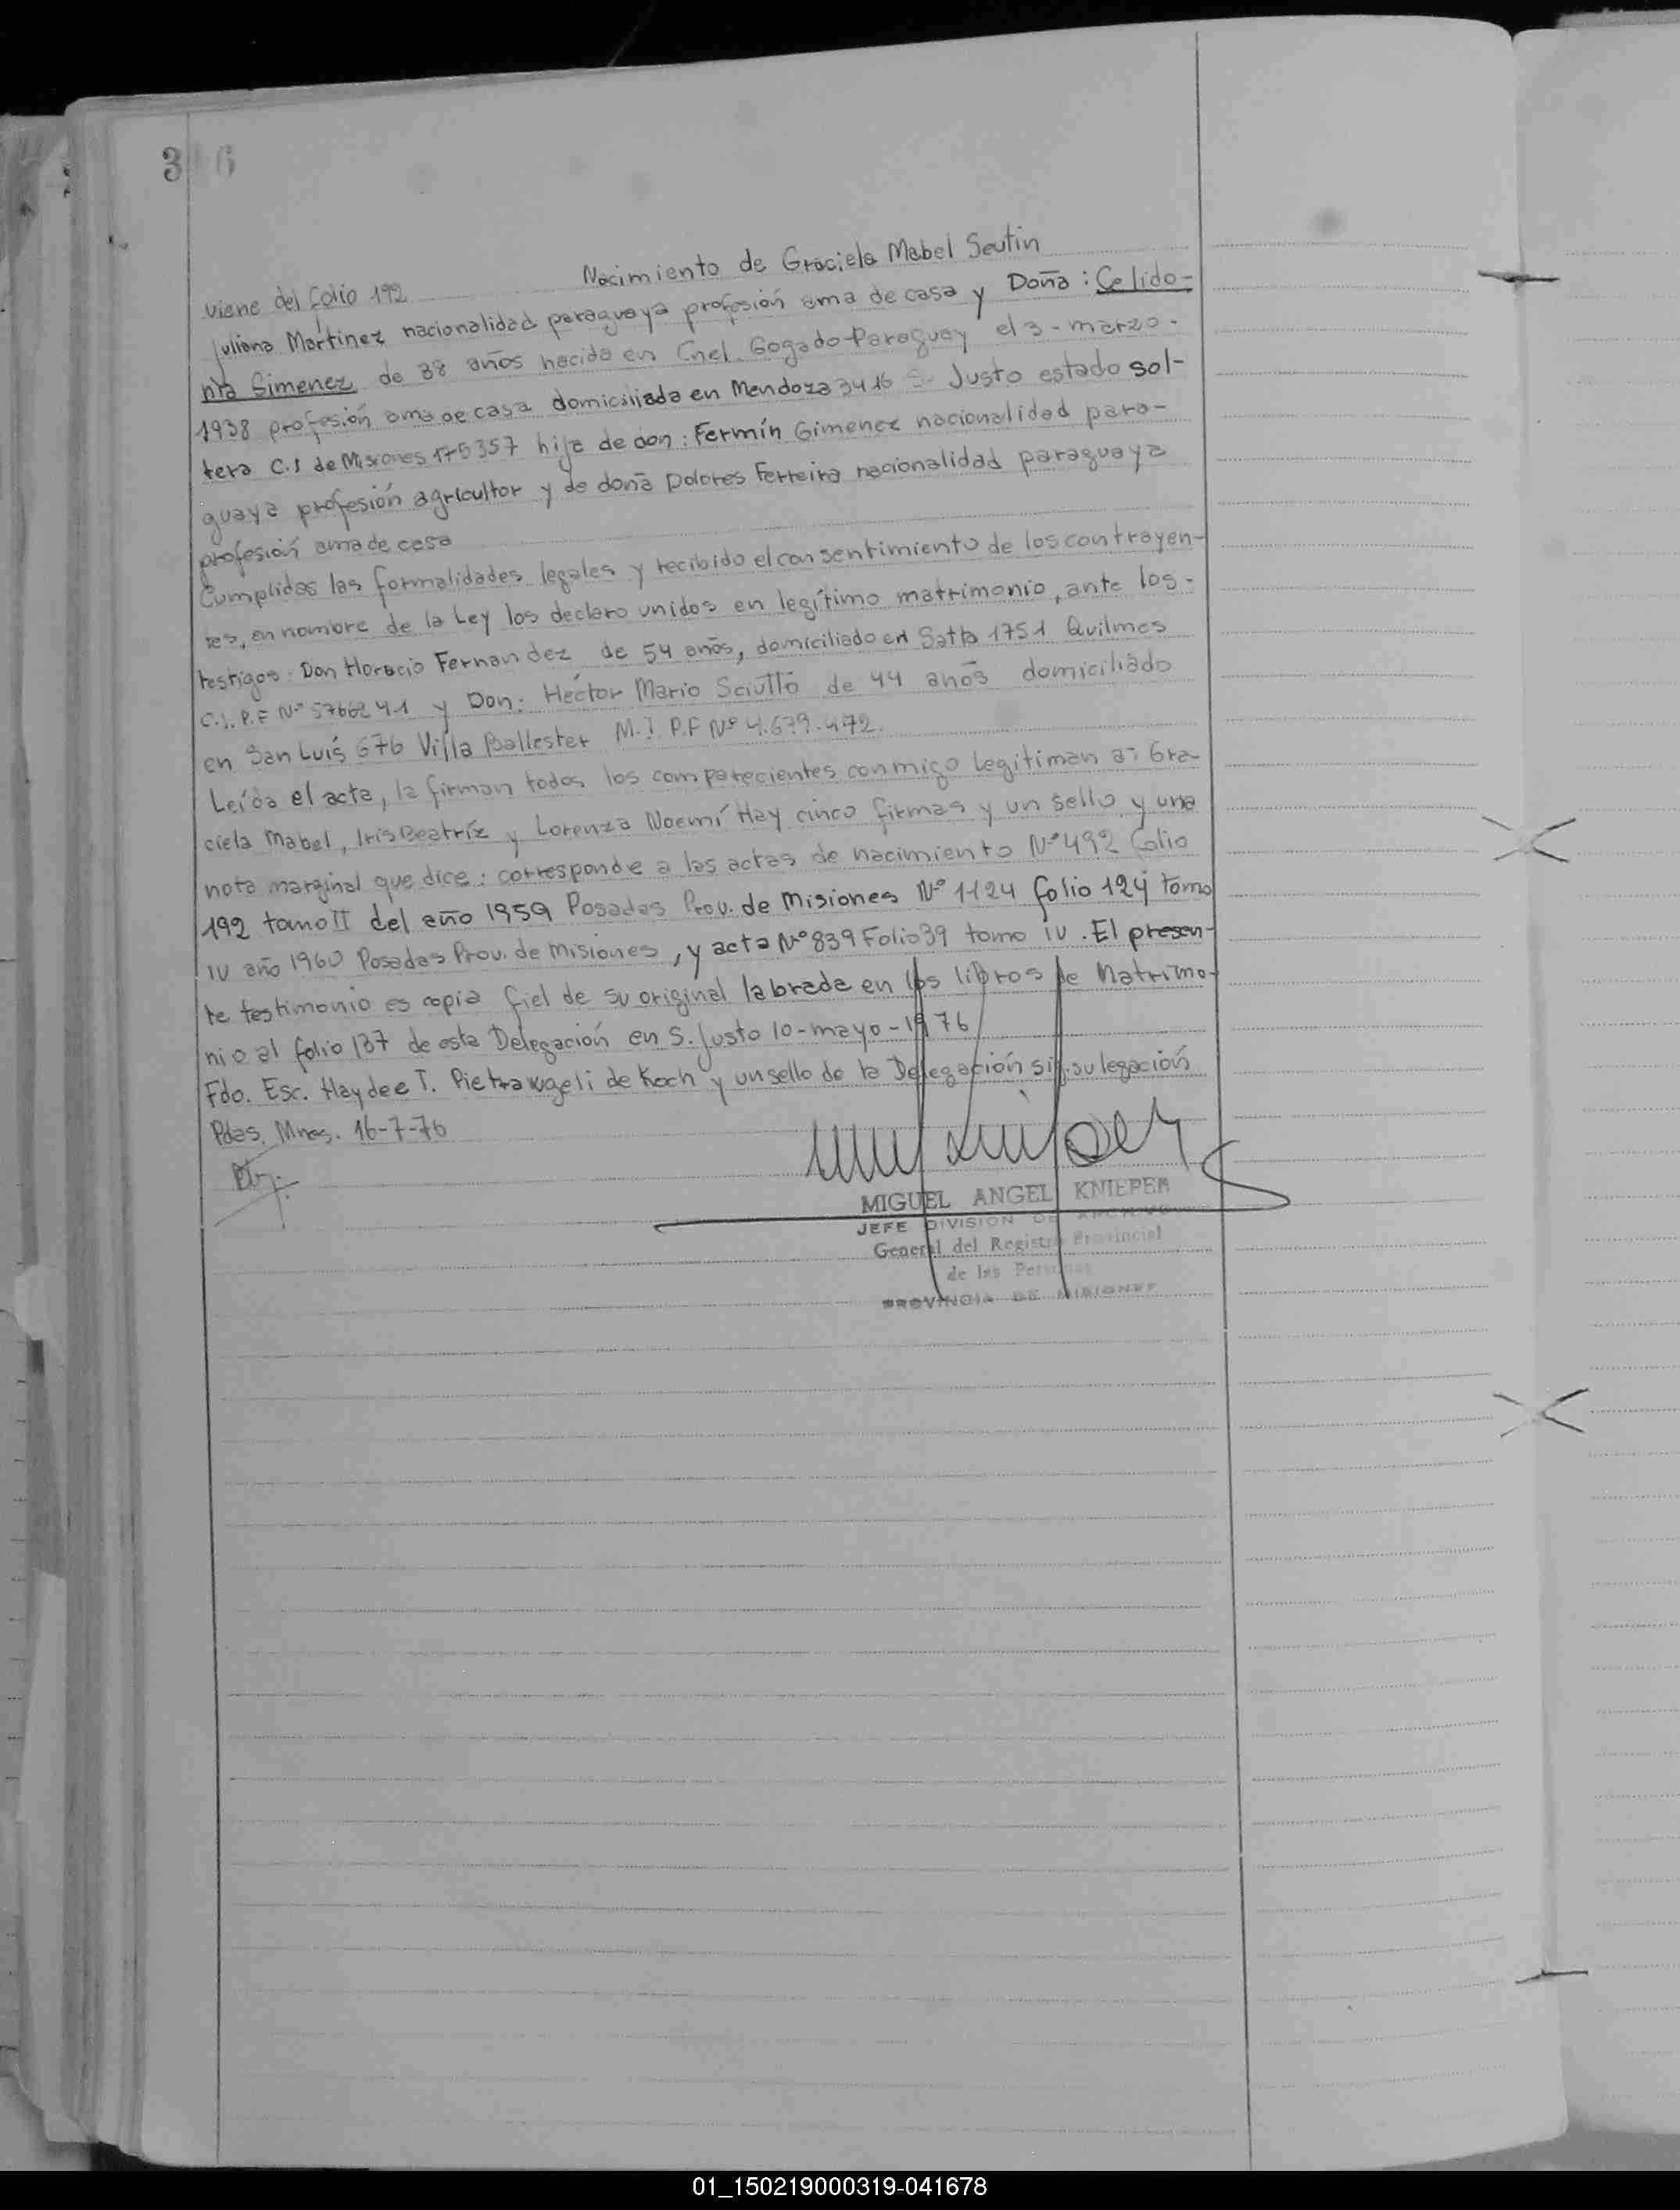 3 6
Nacimiento de Graciela Mabel Seutin
viene del folio 192
Juliana Martinez nacionalidad paraguaya profesión ama de casa y Doña: Celido-
nia Gimenez de 38 años nacida en Cnel. Bogado-Paraguay el 3-marzo-
1938 profesión ama de casa domiciliada en Mendoza 3416 S. Justo estado sol-
tera C.I de Misiones 175357 hija de don: Fermín Gimenez nacionalidad para-
guaya profesión agricultor y de doña Dolores Ferreira nacionalidad paraguaya
profesión ama de casa
Cumplidas las formalidades legales y recibido el consentimiento de los contrayen-
tes, en nombre de la Ley los declaro unidos en legítimo matrimonio, ante los-
testigos: Don Horacio Fernandez de 54 años, domiciliado en 1751 Quilmes
C.I. P.F Nº 5766241 y Don: Héctor Mario Sciutto de 44 años domiciliado
en San Luís 676 Villa Ballester M.I P.F Nº 4.679.472.
Leída el acta, la firman todos los comparecientes conmigo Legitiman a: Gra-
ciela Mabel, Iris Beatríz y Lorenza Noemí Hay cinco firmas y un sello y una
nota marginal que dice: corresponde a las actas de nacimiento Nº 492 folio
192 tomo II del año 1959 Posadas Prov. de Misiones Nº 1124 folio 124 tomo
IV año 1960 Posadas Prov. de Misiones, y acta Nº 839 Folio 39 tomo IV. El presen-
te testimonio es copia fiel de su original labrada en los libros de Matrimo-
nio al folio 137 de esta Delegación en S. Justo 10-mayo-1976
Fdo. Esc. Haydee T. Pietrangeli de Koch y un sello de la Delegación sif. su legación
Pdas. Mnes. 16-7-76
MIGUEL ANGEL KNIEPER
JEFE DIVISION DE ARCHIVO
General del Registro Provincial
de las Personas
PROVINCIA DE MISIONES
01_150219000319-041678